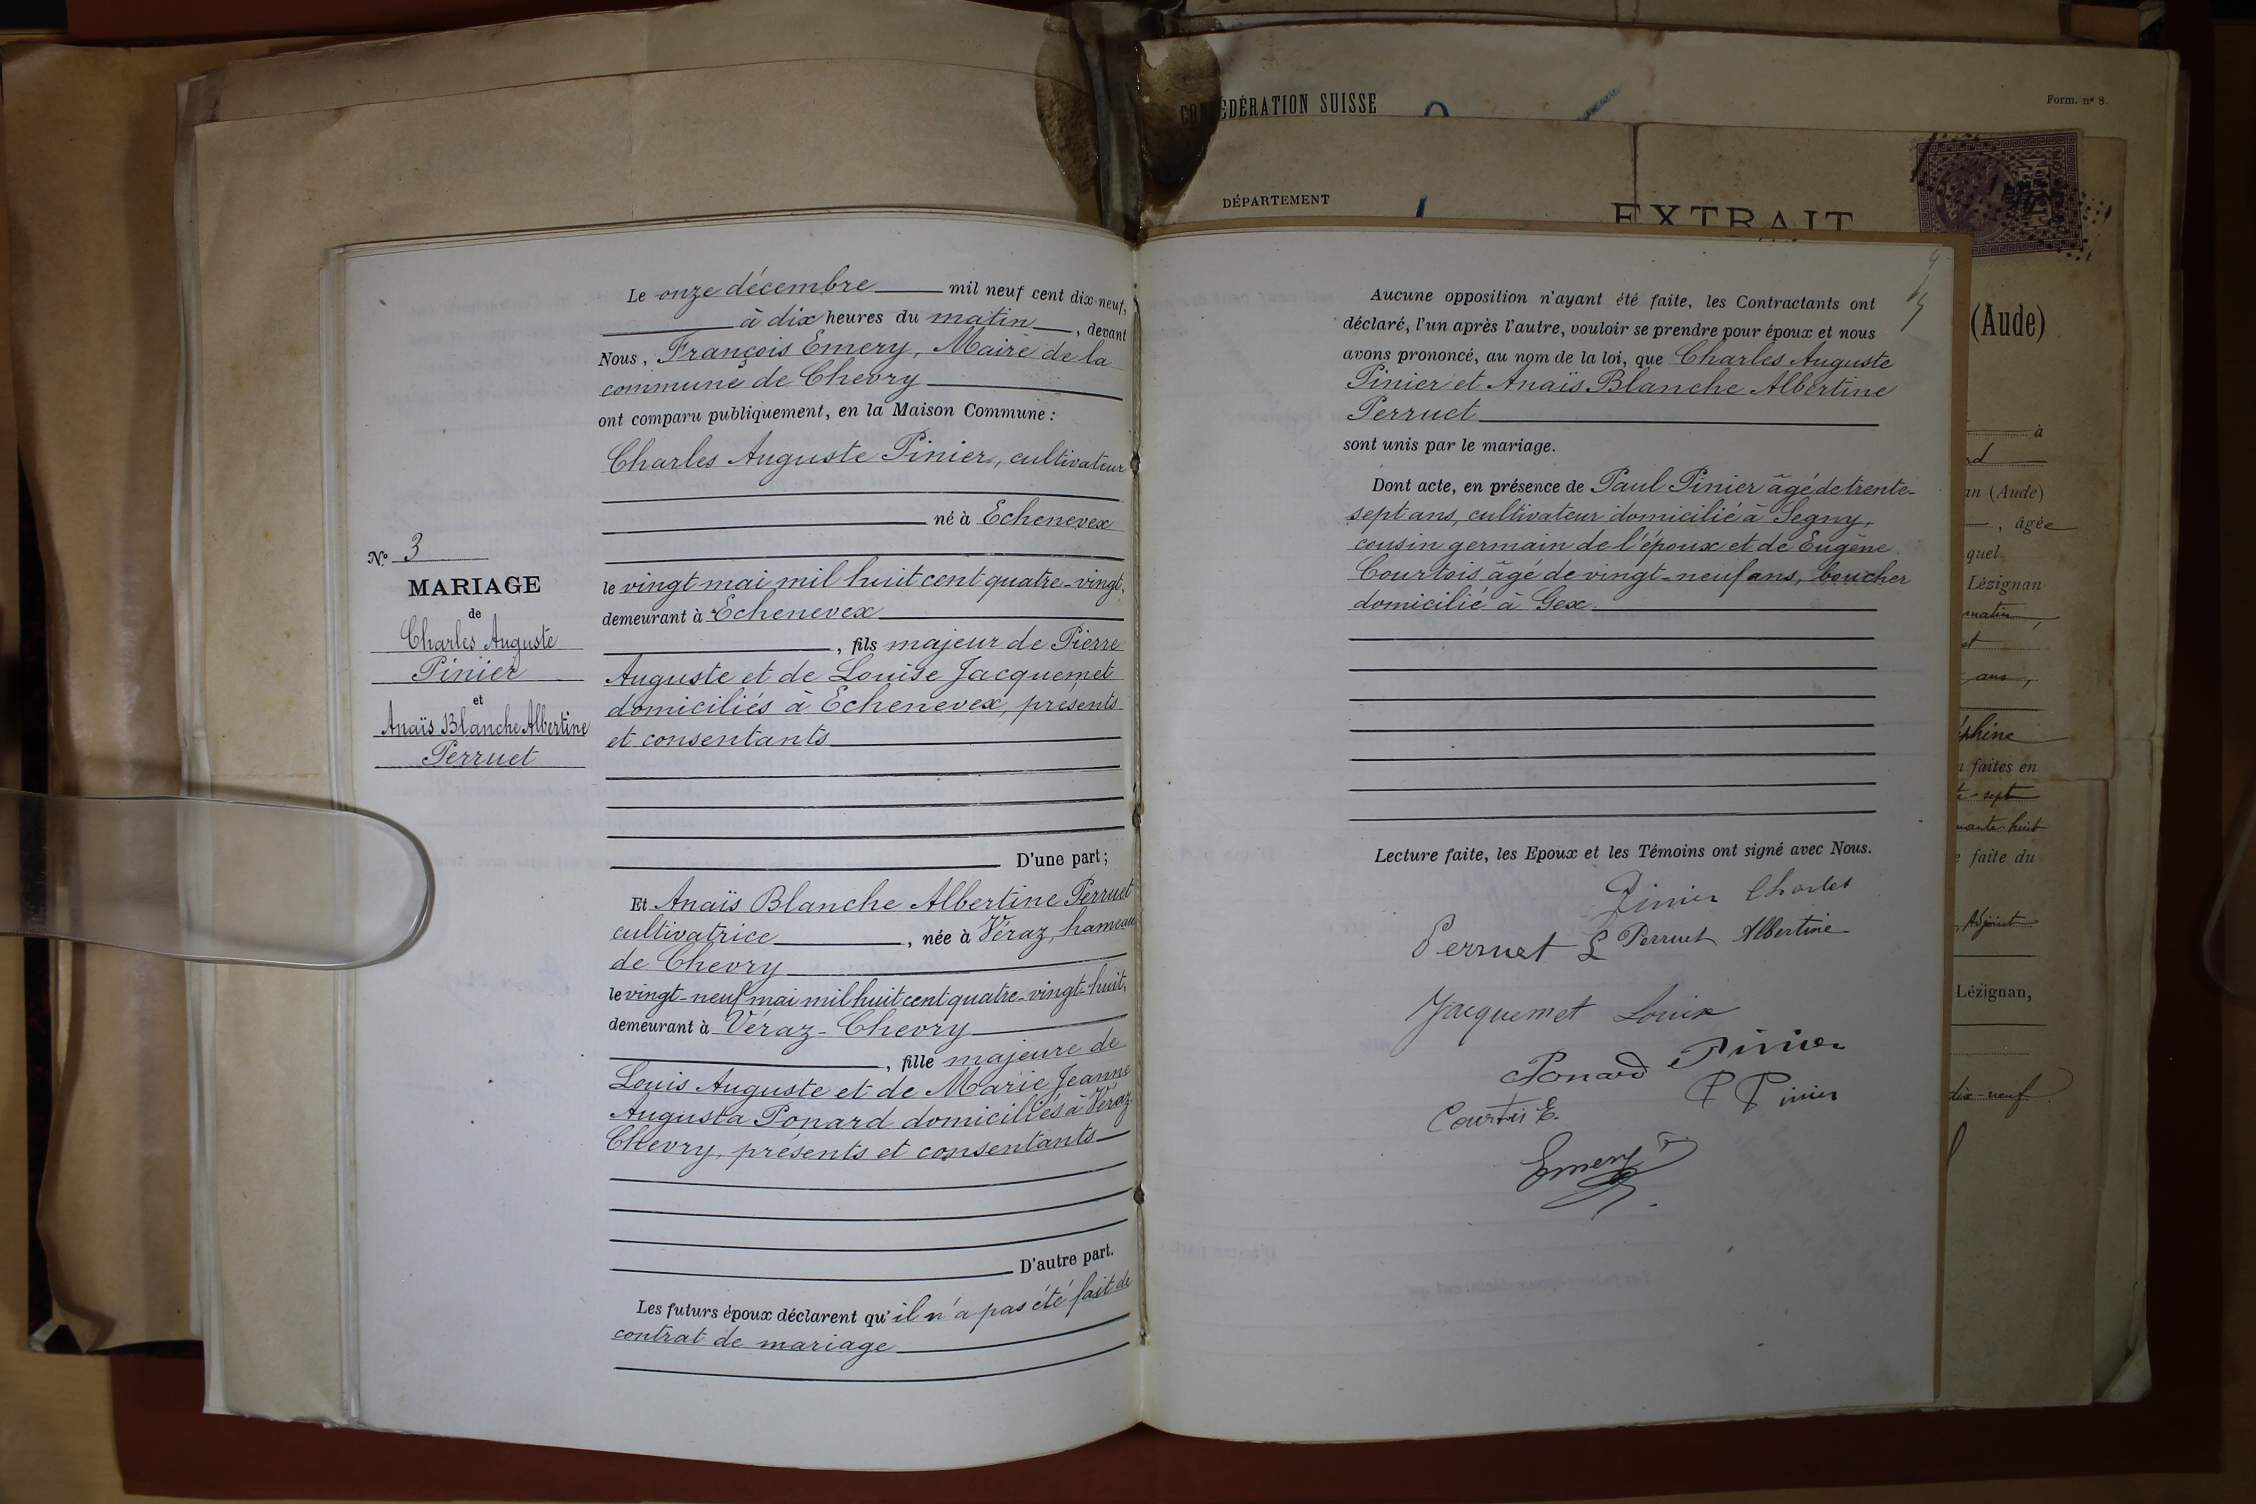 CONFÉDÉRATION SUISSE
Form. nº 8.
DÉPARTEMENT
EXTRAIT
Nº 3
MARIAGE
de
Charles Auguste
Pinier
et
Anaïs Blanche Albertine
Perruet
Le onze décembre mil neuf cent dix-neuf,
à dix heures du matin, devant
Nous, François Emery, Maire de la
commune de Chevry
ont comparu publiquement, en la Maison Commune :
Charles Auguste Pinier, cultivateur
né à Echenevex
le vingt mai mil huit cent quatre-vingt,
demeurant à Echenevex
, fils majeur de Pierre
Auguste et de Louise Jacquemet
domiciliés à Echenevex, présents
et consentants
D'une part ;
Et Anaïs Blanche Albertine Perruet
cultivatrice, née à Véraz, hameau
de Chevry
le vingt-neuf mai mil huit cent quatre-vingt-huit,
demeurant à Véraz-Chevry
, fille majeure de
Louis Auguste et de Marie Jeanne
Augusta Ponard domiciliés à Véraz-
Chevry, présents et consentants
D'autre part.
Les futurs époux déclarent qu'il n'a pas été fait de
contrat de mariage
Aucune opposition n'ayant été faite, les Contractants ont
déclaré, l'un après l'autre, vouloir se prendre pour époux et nous
avons prononcé, au nom de la loi, que Charles Auguste
Pinier et Anaïs Blanche Albertine
Perruet
sont unis par le mariage.
Dont acte, en présence de Paul Pinier âgé de trente-
sept ans, cultivateur domicilié à Segny,
cousin germain de l'époux et de Eugène
Courtois âgé de vingt-neuf ans, boucher
domicilié à Gex.
Lecture faite, les Epoux et les Témoins ont signé avec Nous.
Pinier Charles
Perruet L Perruet Albertine
Jacquemet Louise
Ponard Pinier
P Pinier
Courtois E.
Emery F
(Aude)
à
(Aude)
, âgée
quel
Lézignan
matin,
et
ans,
faites en
sept
huit
faite du
Adjoint
Lézignan,
dix-neuf.